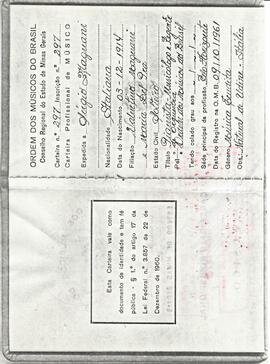 ORDEM DOS MÚSICOS DO BRASIL
Conselho Regional do Estado de Minas Gerais
Carteira n.º 297 Inscrição n.º 297
Carteira Profissional de MÚSICO
Expedida a Sérgio Magnani
Nacionalidade Italiana
Data do Nascimento 03-12-1914
Filiação
e Maria
Estado Civil
Título
Pel
Tendo colado grau aos
Séde principal da profissão Belo Horizonte
Data do Registro na O.M.B. 09/10/1961
Gênero Música Erudita
Obs. Natural de Udine-Itália
Esta Carteira vale como
documento de identidade e tem fé
pública - § 1.º do artigo 17 da
Lei Federal n.º 3.857 de 22 de
Dezembro de 1960.